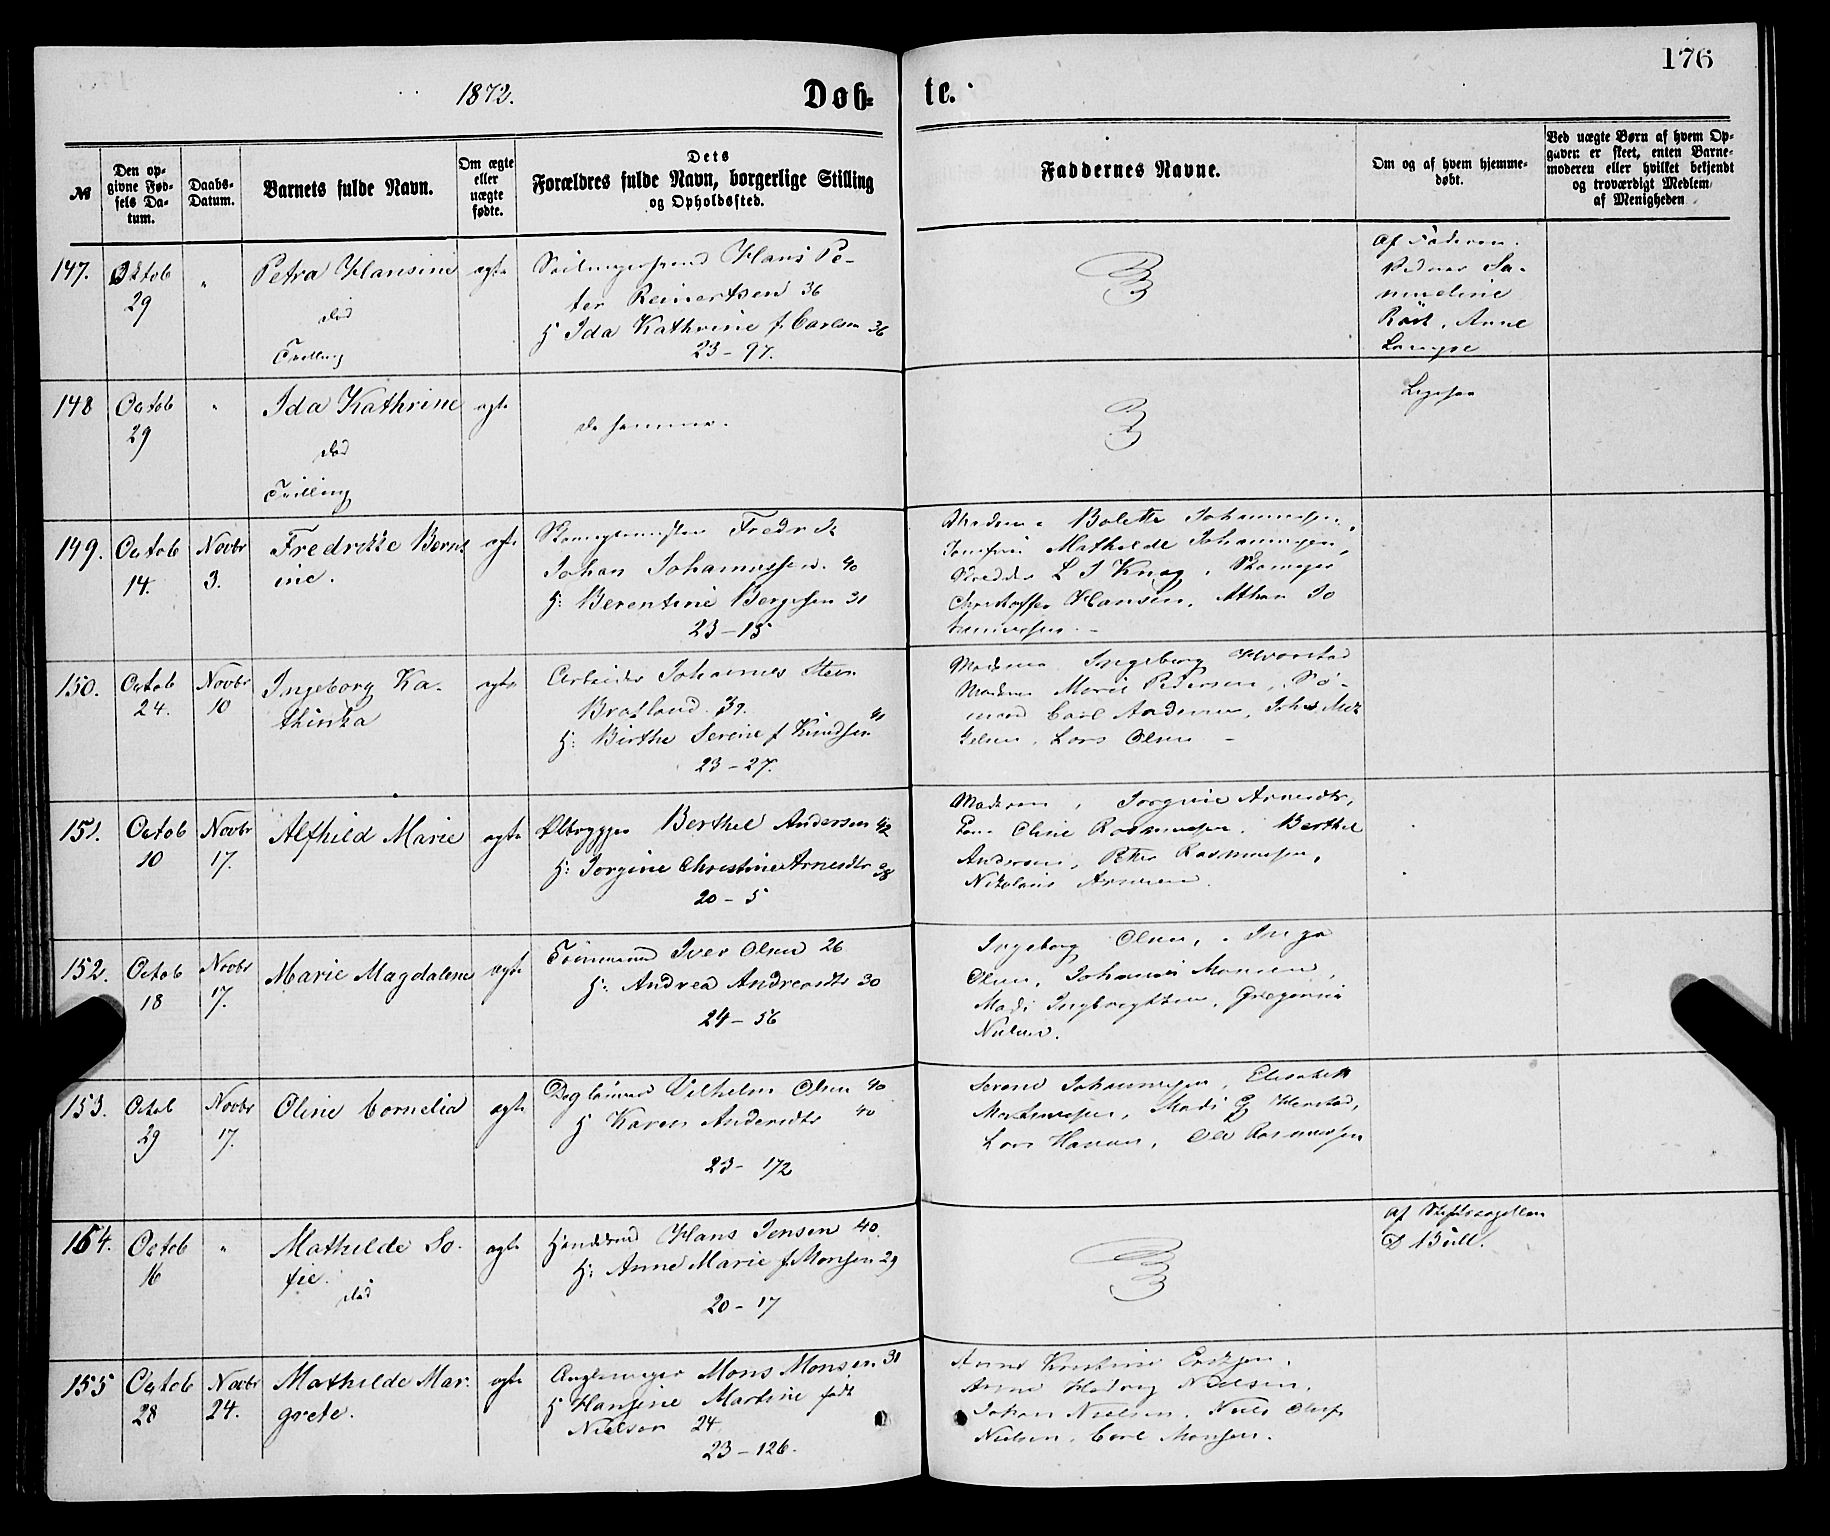 176
1872.
Døb-
te.
№
Den op-
givne Fød-
sels Da-
tum.
Daabs-
Datum.
Barnets fulde Navn.
Om ægte
eller
uægte
fødte.
Dets
Forældres fulde Navn, borgerlige Stilling
og Opholdssted.
Faddernes Navne.
Om og af hvem hjemme-
døbt.
Ved uægte Børn af hvem Op-
gaven er skeet, enten Barne-
moderen eller hvilket bekjendt
og troværdigt Medlem
af Menigheden
147.
Oktob
29
"
Petra Hansine
død
Tvilling
ægte
Hans Pe-
ter Reinertsen 36
H Ida Kathrine f. Carlsen 36
23-97.
Af Faderen.
Anne
148
Octob
29
"
Ida Kathrine
død
Tvilling
ægte
de samme.
Ligesaa
149.
Octob
14.
Novbr
3.
Fredrikke Bernt
ine.
ægte
Fredrik
Johan Johannessen. 40
H: Berentine Bergesen 31
23-15
Madame Bolette Johannessen,
Jomfru Mathilde Johannesen,
L J Knag, Skomager
Christoffer Hansen, Athan Jo
hannesen. -
150.
Octob
24.
Novbr
10
Ingeborg Ka-
thinka
ægte
Arbeider Johannes Steen
Bratland. 39.
H: Birthe Serine f Knudsen 41
23-27.
Madame Ingeborg
Madame Marie Pedersen, Sø-
mand Carl Andersen, Johs
Lars Olsen -
151.
Octob
10
Novbr
17.
Alfhild Marie
ægte
Ølbrygger Berthel Andersen 42
H: Jorgine Christine Arnesdtr 38
20-5
Moderen, Jorgine Arnesdtr,
Oline Rasmussen, Berthel
Andersen, Peter Rasmussen,
Nikolai Arnesen.
152.
Octob
18
Novbr
17.
Marie Magdalene
ægte
Iver Olsen 26
H: Andrea Andreasdtr 30
24-56
Ingeborg Olsen, Inga
Olsen, Johannes Monsen,
Mads Ingebrigtsen,
Nielsen.
153.
Octob
29
Novbr
17.
Oline Cornelia
ægte
Vilhelm Olsen 40
H Karen Andersdtr 40
23- 172
Serene Johannesen, Elisabeth
Mads
Lars Hansen, Ole Rasmussen
154.
Octob
16
"
Mathilde So-
fie.
død
ægte
Hans Jensen 40.
H: Anne Marie f. Monsen 29
20-17
Af
Bull.
155
Octob
28
Novbr
24.
Mathilde Mar-
grete.
ægte
Mons Monsen 31
H Hansine Martine født
Nielsen 24.
23-126.
Anne Kristine
Anne Hedvig Nielsen,
Johan Nielsen, Niels Oluf
Nielsen, Carl Monsen.